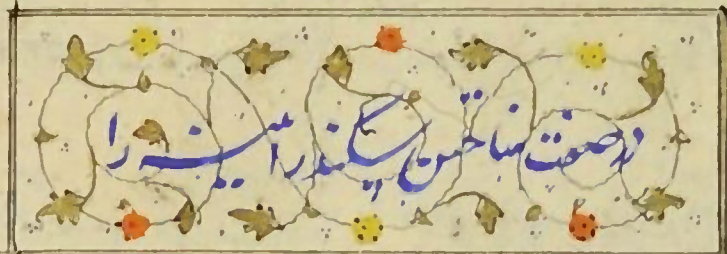 در صفت ساختن سکندر آیینه را